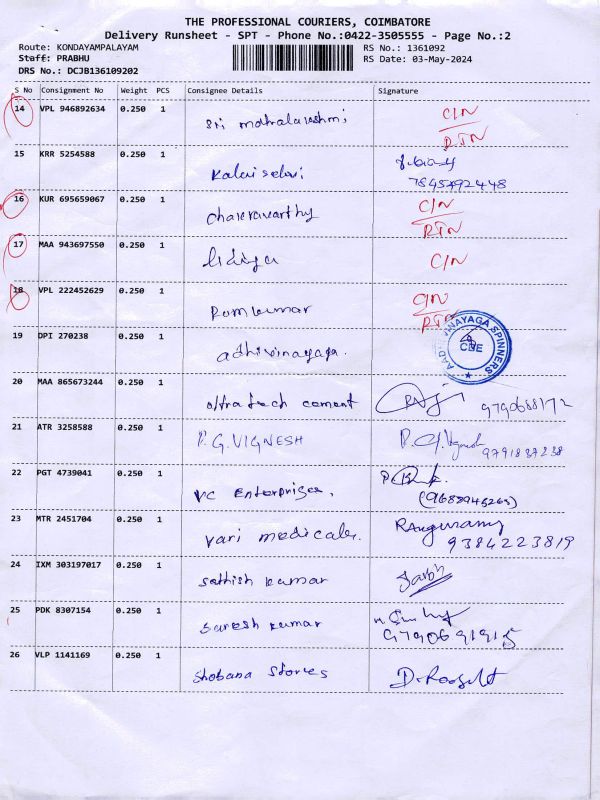 THE PROFESSIONAL COURIERS, COIMBATORE
Delivery Runsheet - SPT - Phone No.:0422-3505555 - Page No.:2
Route: KONDAYAMPALAYAM RS No.: 1361092
Staff: PRABHU RS Date: 03-May-2024
DRS No.: DCJB136109202
S No Consignment No Weight PCS Consignee Details Signature
14 VPL 946892634 0.250 1 Sri mahalakshmi C/N
RTN
15 KRR 5254588 0.250 1 Kalaiselvi
7845792448
16 KUR 695659067 0.250 1 Chakravarthy C/N
RTN
17 MAA 943697550 0.250 1 C/N
18 VPL 222452629 0.250 1 Ramkumar C/N
RTN
19 DPI 270238 0.250 1 adhivinayaga. VINAYAGA SPINNERS CBE
20 MAA 865673244 0.250 1 ultratech cement
21 ATR 3258588 0.250 1 P.G. VIGNESH P.G. Vignesh
9791837238
22 PGT 4739041 0.250 1 VC Enterprises,
23 MTR 2451704 0.250 1 Vari medicals. Ranguramy
9384223819
24 IXM 303197017 0.250 1 Sathish kumar
25 PDK 8307154 0.250 1 Suresh kumar
9790691915
26 VLP 1141169 0.250 1 Shobana Stores